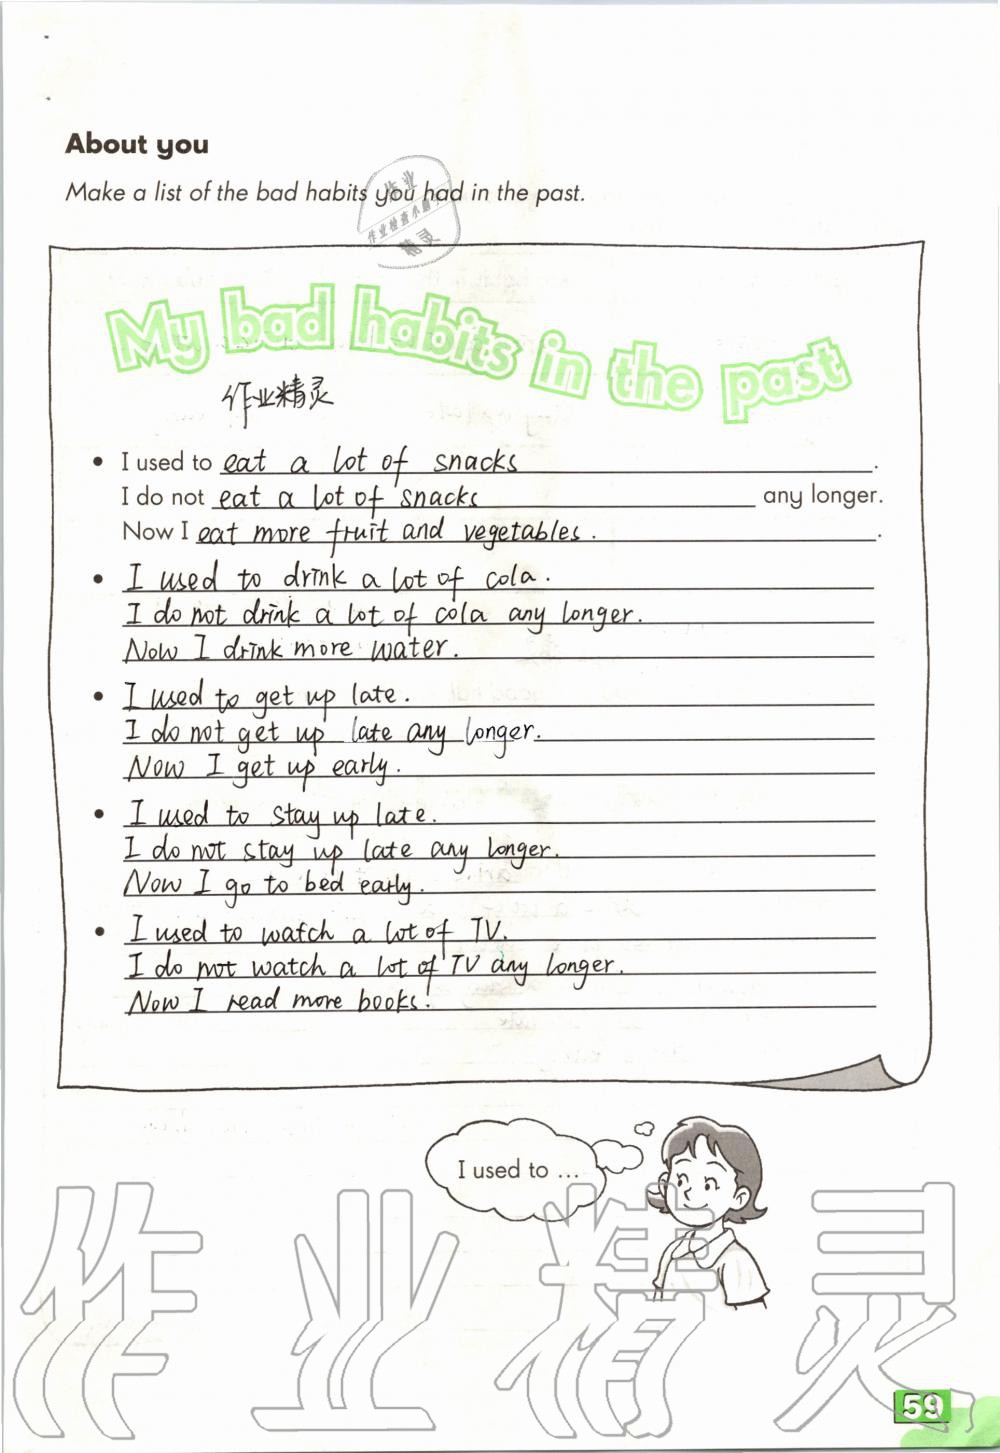 About you
Make a list of the bad habits you had in the past.
作业
作业检查小助手
精灵
My bad habits in the past
作业精灵
• I used to eat a lot of snacks.
I do not eat a lot of snacks any longer.
Now I eat more fruit and vegetables. .
• I used to drink a lot of cola.
I do not drink a lot of cola any longer.
Now I drink more water.
• I used to get up late.
I do not get up late any longer.
Now I get up early.
• I used to stay up late.
I do not stay up late any longer.
Now I go to bed early.
• I used to watch a lot of TV.
I do not watch a lot of TV any longer.
Now I read more books.
I used to ...
作业精灵
59